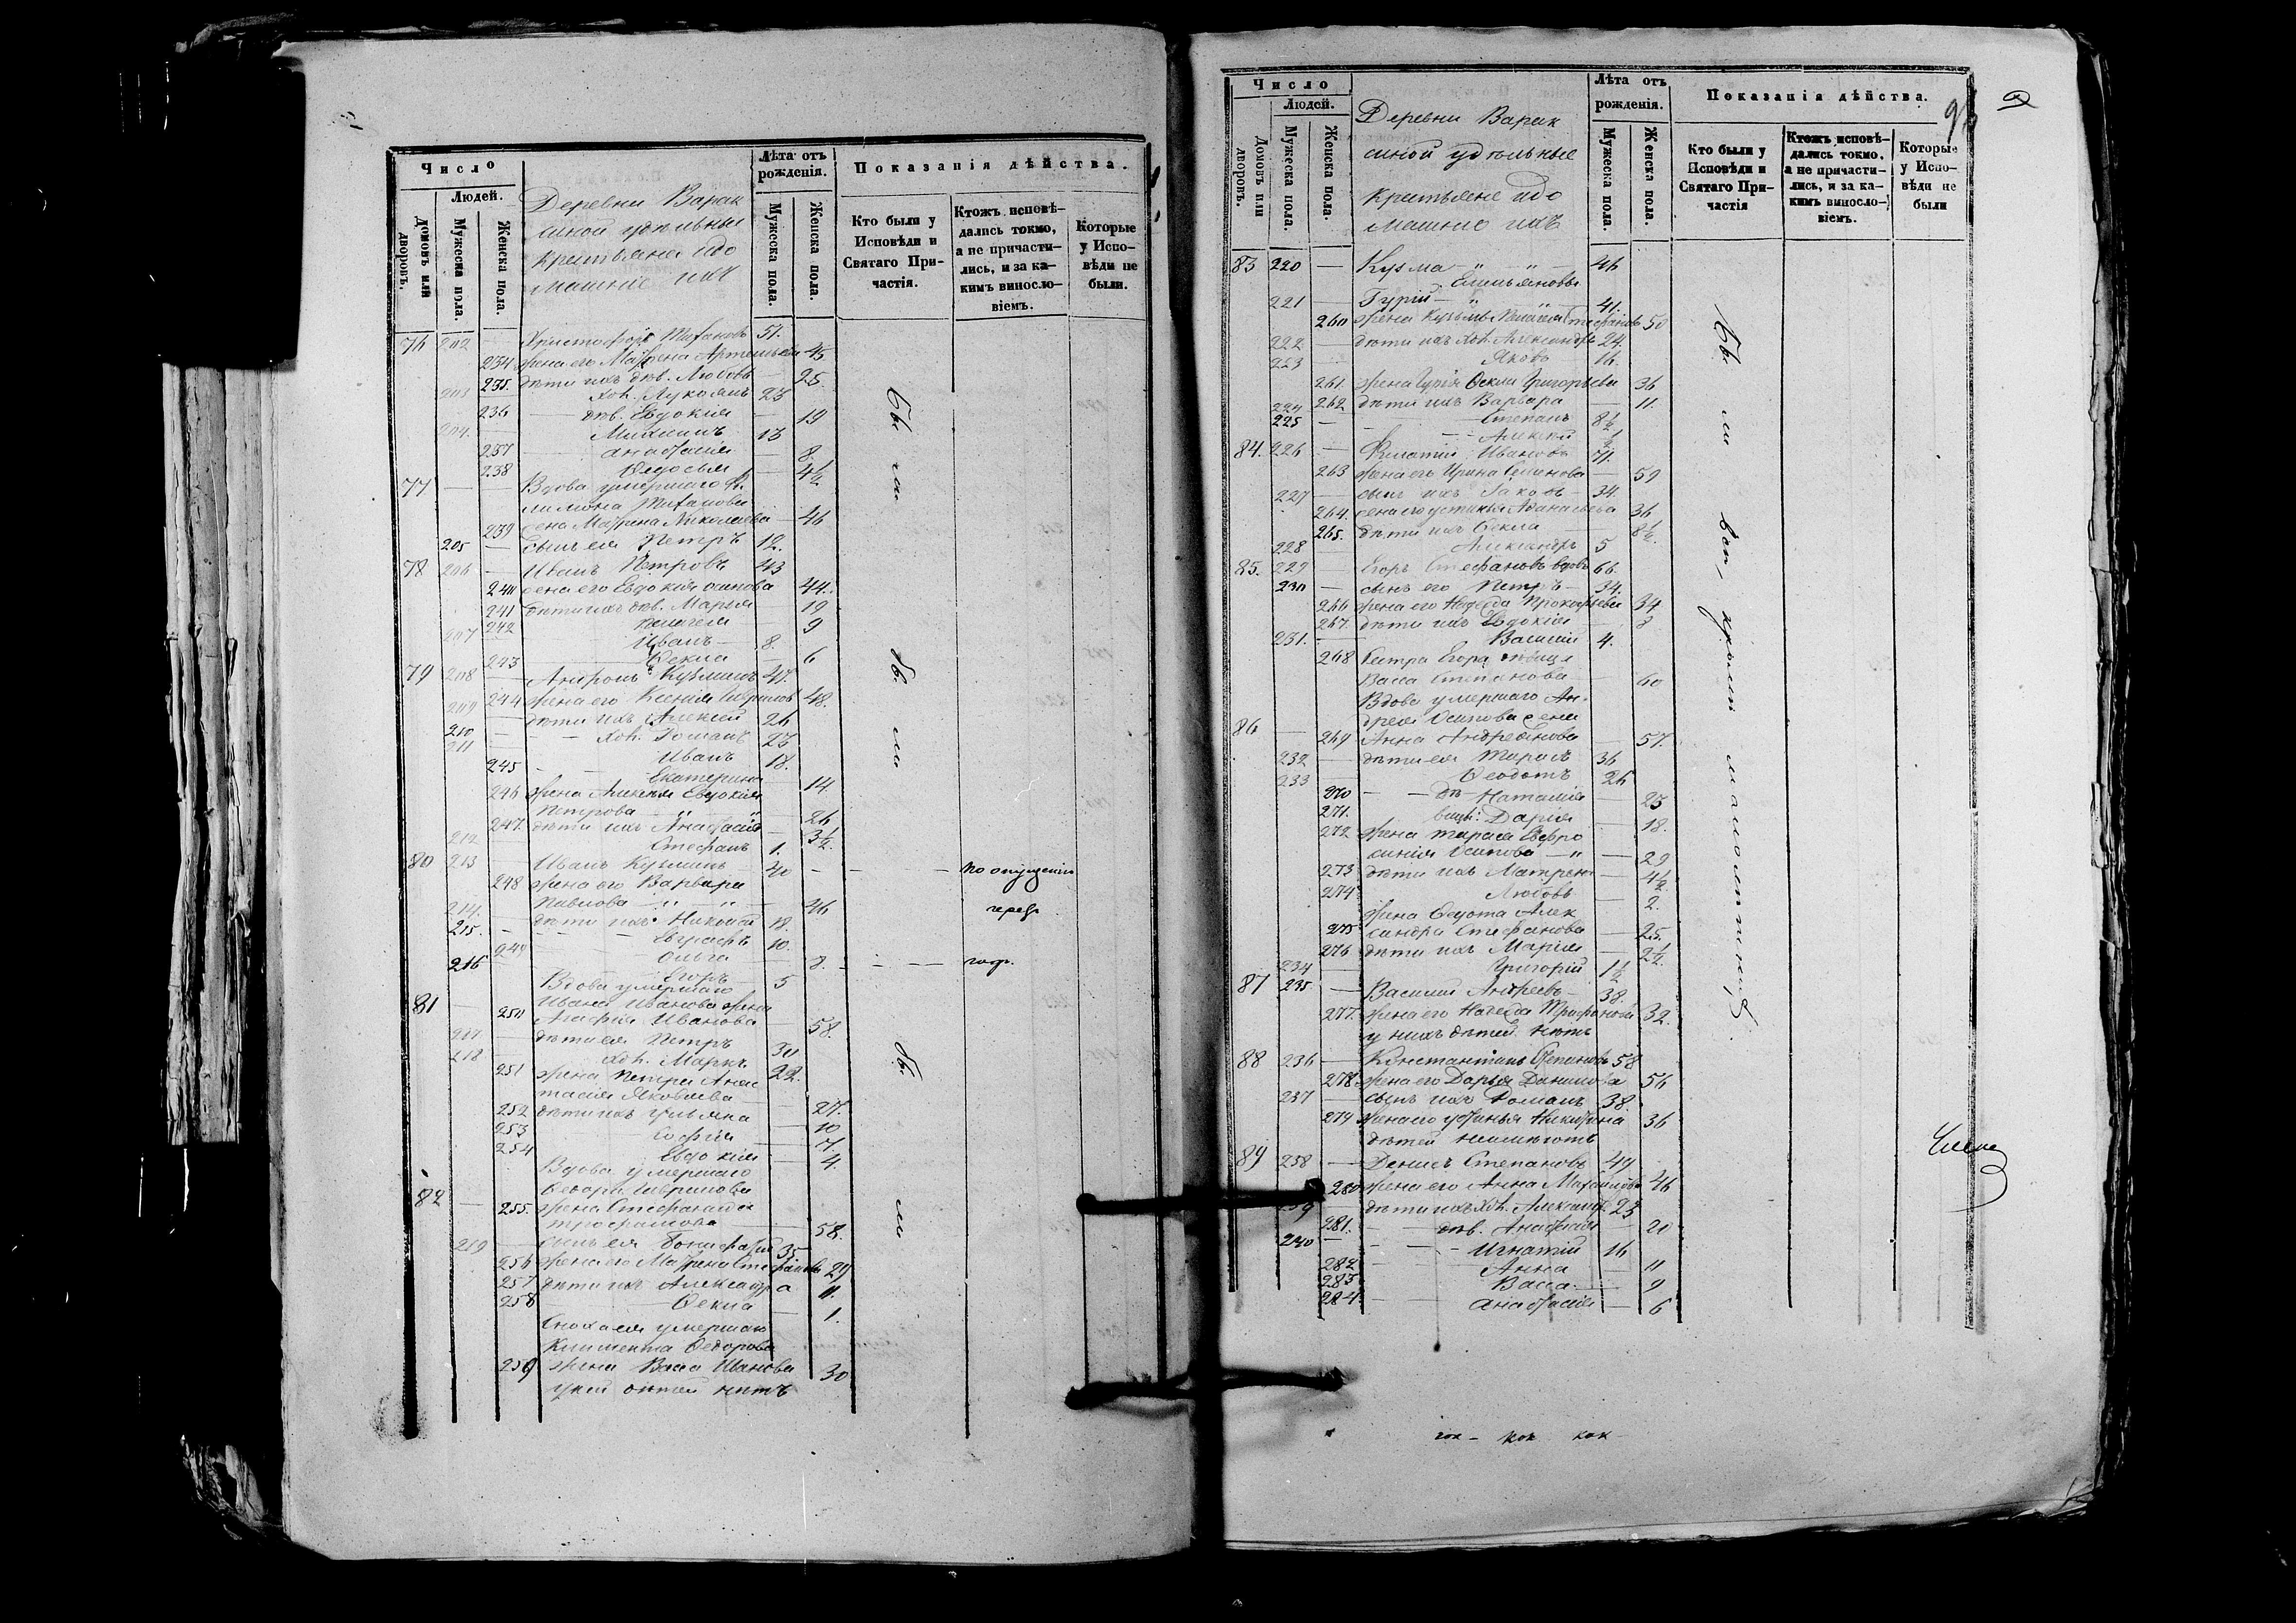 Число
Людей.
Домовъ или дворовъ.
Мужеска пола.
Женска пола.
Деревни Варак
синой удѣльные
крестьяне идо
машние ихъ
Лѣта отъ рожденія.
Мужеска пола.
Женска пола.
Показанія дѣйства.
Кто были у Исповѣди и Святаго Причастія.
Ктожъ исповѣдались токмо, а не причастились, и за какимъ винословіемъ.
Которые у Исповѣди не были.
76 202 — Христофоръ 51.
234 жена его Матрена 45
235. дѣти ихъ дѣв. Любовь — 25.
203 Хол. Лукоянъ 23
236 — дѣв. Евдокія — 19
204. — Михаилъ 13
237 Анастасія — 8.
238 Ѳедосья — 4½
77 — — Вдова умершаго Фи
лимона
239 жена Матрена Николаева — 46
205 — сынъ ея Петръ 12.
78 206 — Иванъ Петровъ 43
240 жена его Евдокія осипова 44.
241 дѣти ихъ дѣв. Марья — 19
242 Пелагея 9
207 Иванъ — 8.
243 Ѳекла — 6
79 208 — Андронъ Кузминъ 47.
244 жена его Ксенія Гаврилов 48.
209 — дѣти ихъ Алексей 26
210 — — Хол. Романъ 23
211 — Иванъ 18.
245 Екатерина 14.
246 жена Алексея Евдокия
Петрова — 26
247. дѣти ихъ Анастасія — 3½
212 Стефанъ 1.
80 213 — Иванъ Кузминъ 40 — — — по опущенію
248 жена его Варвара
Павлова — 46
214. — дѣти ихъ Николай 18.
215. — Евграфъ 10.
249 Ольга 8.
216 Егоръ 5
81 — Вдова умершаго
Ивана Иванова жена
250 Агафія Иванова 58.
217 — дѣти ея Петръ 30
218 Хол. Маркъ 22.
251 жена Петра Анас
тасія Яковлева — 27.
252 дѣти ихъ Ульяна — 10
253 Софія — 7
254 Евдокія — 4.
82 — Вдова умершаго
Ѳедора Гаврилова
255. жена Стефанида
Трофимова 58.
219 — сынъ ея Бонифатій 35
256 жена его Матрена Стефанов 29
257 дѣти ихъ Александра 11.
258 Ѳекла 1.
Сноха ея умершаго
Климента Ѳедорова
259 жена Васса Иванова 30
у ней дѣтей нѣтъ
бы ли бы ли бы ли
Число
Людей.
Домовъ или дворовъ.
Мужеска пола.
Женска пола.
Деревни Варак
синой удѣльные
крестьяне идо
машние ихъ
Лѣта отъ рожденія.
Мужеска пола.
Женска пола.
Показанія дѣйства.
Кто были у Исповѣди и Святаго Причастія
Ктожъ исповѣдались токмо, а не причастились, и за какимъ винословіемъ.
Которые у Исповѣди не были
83 220 — Кузма 46
Емельяновы
221 — Гурій 41.
260 жена Кузмы Пелагея Стефанов 50
222 — дѣти ихъ Хол. Александръ 24.
223 Яковъ 16.
261. жена Гурія Ѳекла Григорьева 36
262 дѣти ихъ Варвара — 11.
224 Степанъ 8½
225 — Алексей ½
84. 226 — Игнатій Ивановъ 71.
263 жена его Ирина Семенова — 59
227 — сынъ ихъ Іаковъ — 34.
264. жена его устинья Аѳанасьева 36
265. дѣти ихъ Ѳекла 8½.
228 Александръ 5
85. 229 — Егоръ Стефановъ вдовъ 66.
230 — сынъ его Петръ — 34.
266 жена его Надежда Прокофьева 34
267. дѣти ихъ Евдокія — 8
231. — Василій 4.
268 сестра Егора дѣвица
Васса Степанова — 60
86 — Вдова умершаго Ан-
дрея Осипова жена
269 Анна Андреянова — 57.
232 — дѣти ея Тарасъ 36
233 Ѳеодотъ 26
270 — дѣ- Наталія 23
271. вицы: Дарія — 18.
272 жена тараса Евфро
синія Осипова — 29
273 дѣти ихъ Матрена — 4½
274 Любовь — 2.
жена Ѳедота Алек
275 сандра Стефанова — 25.
276 дѣти ихъ Марія — 2½.
234 — Григорій 1½
87 235 — Василій Андреевъ — 38.
277. жена его Надежда Трифонова 32.
у нихъ дѣтей нѣтъ
88 236 — Константинъ Степановъ 58
278 жена его Дарья Данилова 56
237 — сынъ ихъ Романъ 38.
279 жена его устинья Никитина 36
дѣтей неимѣютъ
89 238 — Денисъ Степановъ 49
280 жена его Анна 46
239 — дѣти ихъ Хол. Александръ 23
281. — дѣв. Анастасія — 20
240 — — Игнатій 16
282 — Анна — 11
283 Васса — 9
284. Анастасія — 6
Бы ли вси, кромѣ малолѣтнихъ.